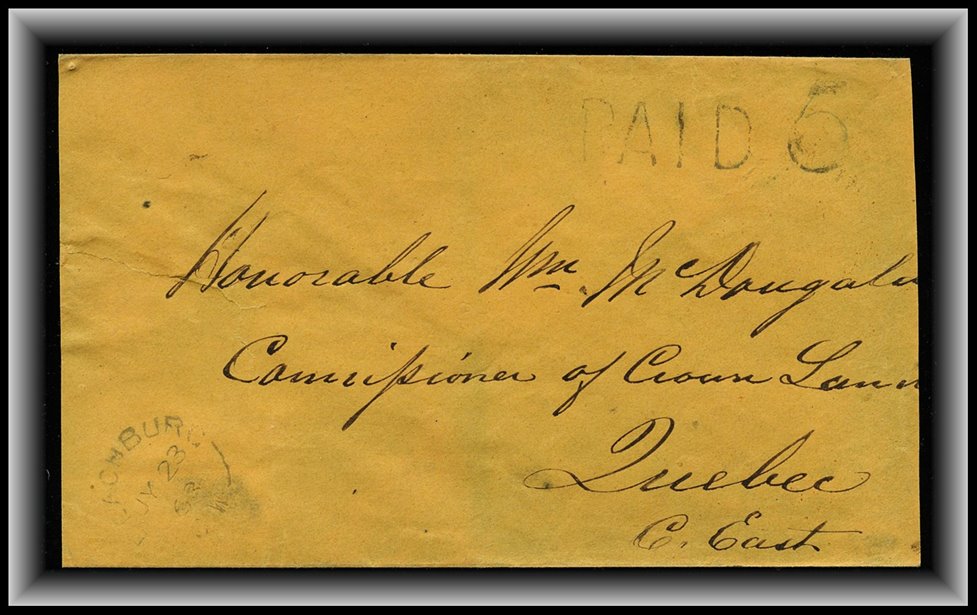 PAID 5
Honorable Wm. McDougal
Commissioner of Crown Lan
Quebec
C. East
JY 23